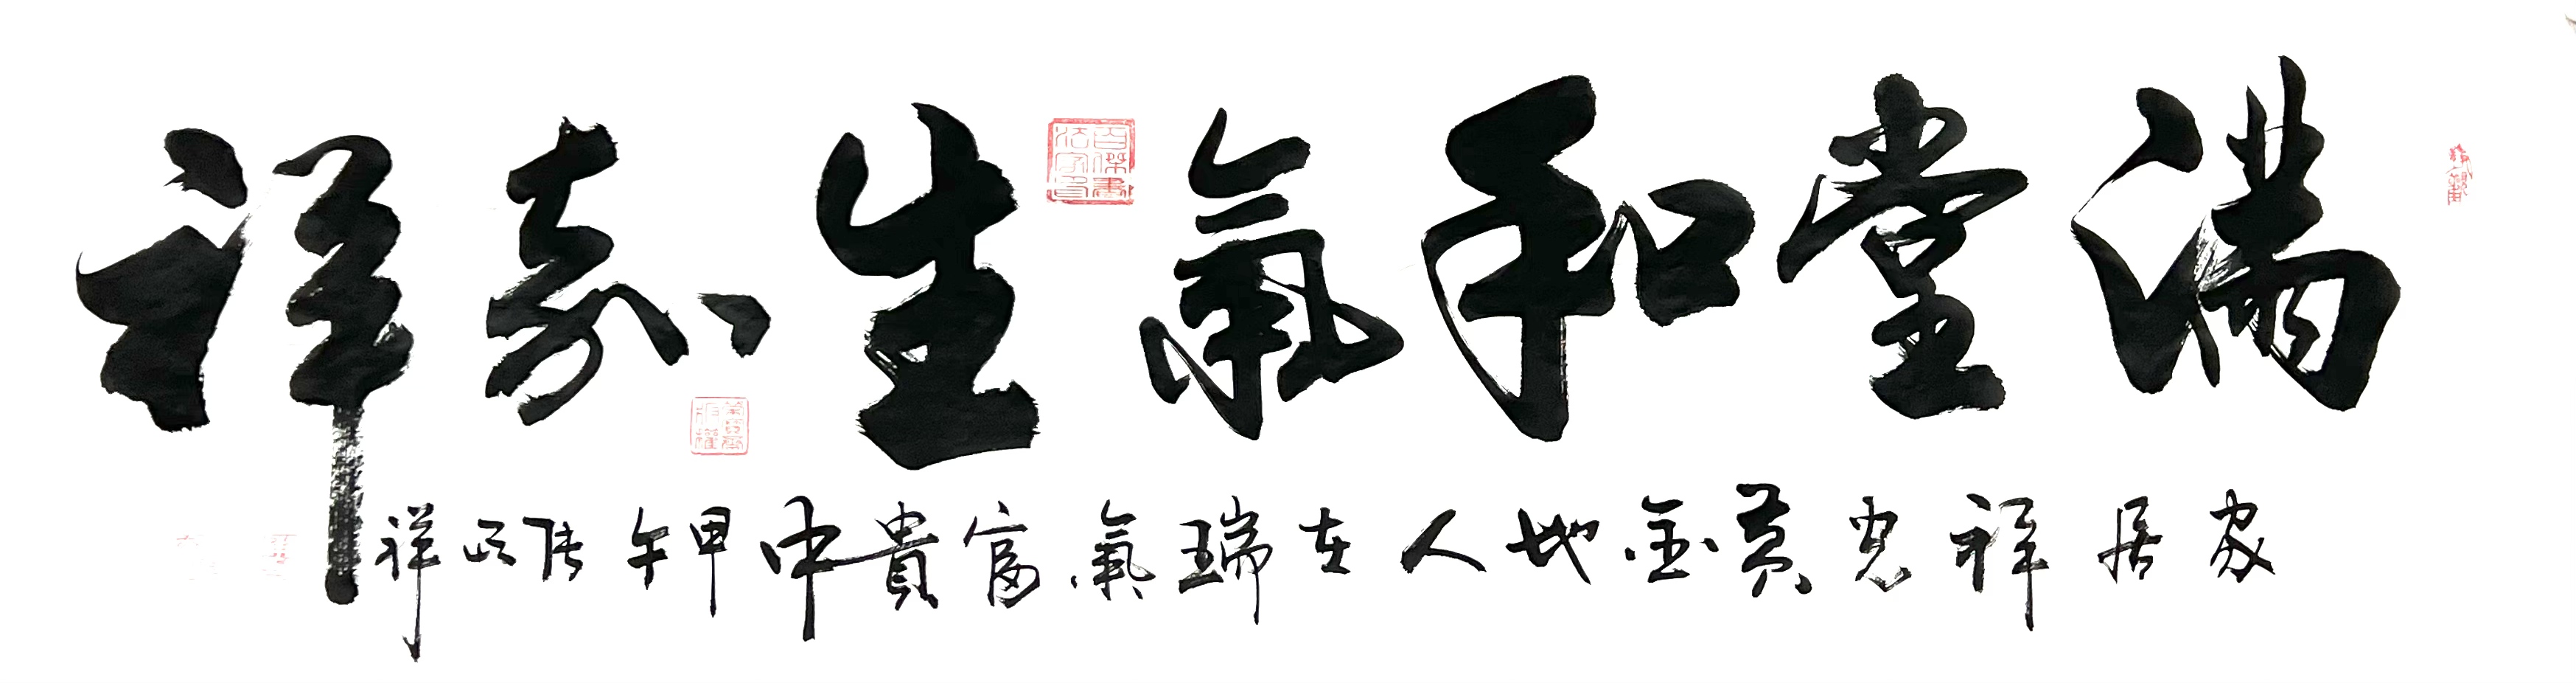 滿堂和氣生嘉祥
家居祥光黃金地人在瑞氣富貴中甲午张祥
百傑書法家